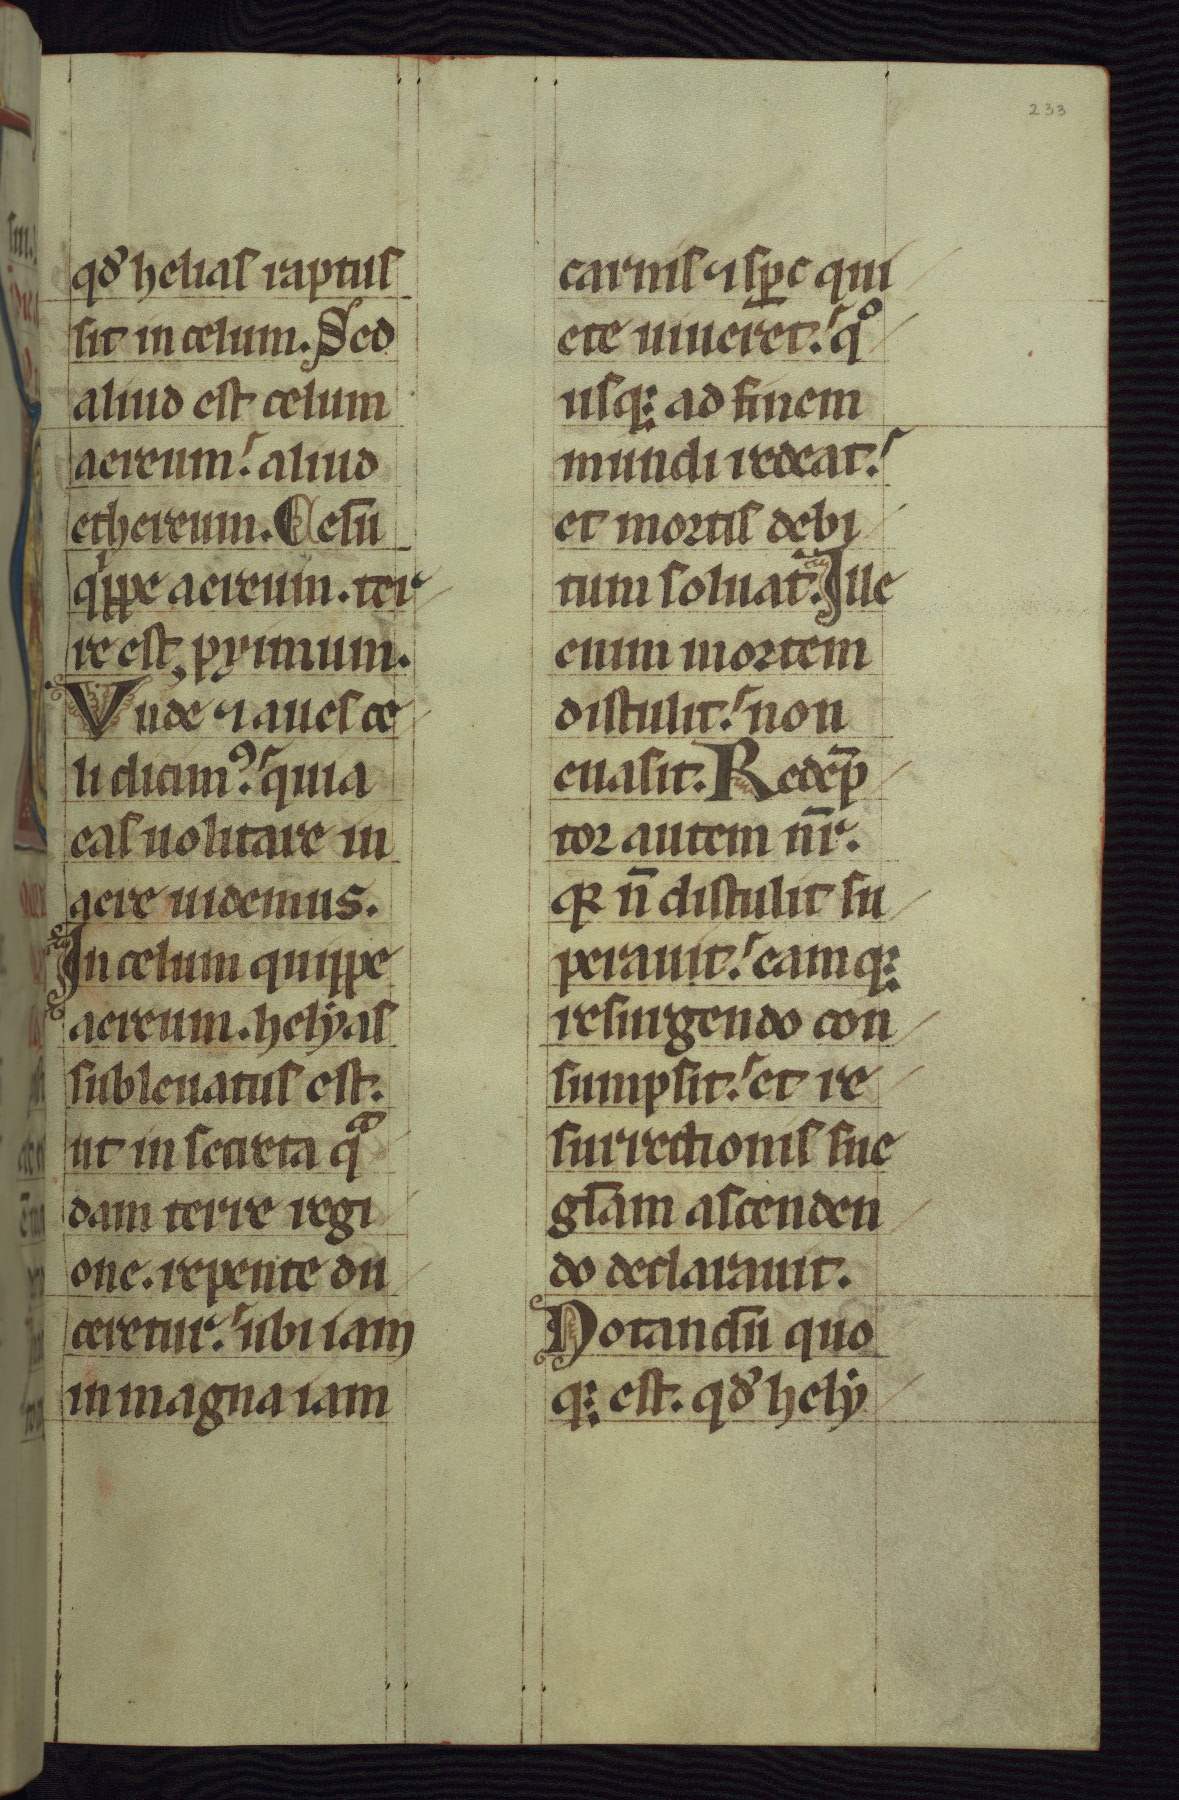 233
qđ helias raptus
sit in celum. Sed
aliud est celum
aereum: aliud
ethereum. Celū
qͥppe aereum. ter
re est, pximum.
Vnde ⁊ aues ce
li dicimꝰ: quia
eas uolitare in
aere uidemus.
In celum quippe
aereum. helyas
subleuatus est.
ut in secreta qͣ
dam terre regi
one. repente du
ceretur: ubi iam
in magna iam
carnis ⁊ spc̄ qui
ete uiueret: qͦ
usqꝫ ad finem
mundi redeat:
et mortis debi
tum soluat. Ille
enim mortem
distulit: non
euasit. Redēp
tor autem nr̄.
qꝛ n̄ distulit su
perauit: eamqꝫ
resurgendo con
sumpsit: et re
surrectionis sue
gl̄am ascenden
do declarauit.
Notandū quo
qꝫ est. qđ hely